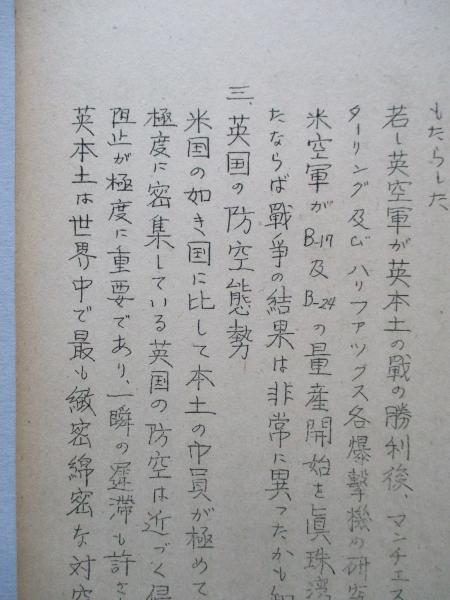 もたらした、
若し英空軍が英本土の戰の勝利後、マンチェス
ターリング及ビハリファックス各爆撃機の研究
米空軍がB-17及B-24の量産開始を眞珠湾
たならば戰争の結果は非常に異ったかも知
三、英国の防空態勢
米国の如き国に比して本土の巾員が極めて
極度に密集している英国の防空は近づく侵
阻止が極度に重要であり、一瞬の遅滞も許さ
英本土は世界中で最も緻密綿密な対空